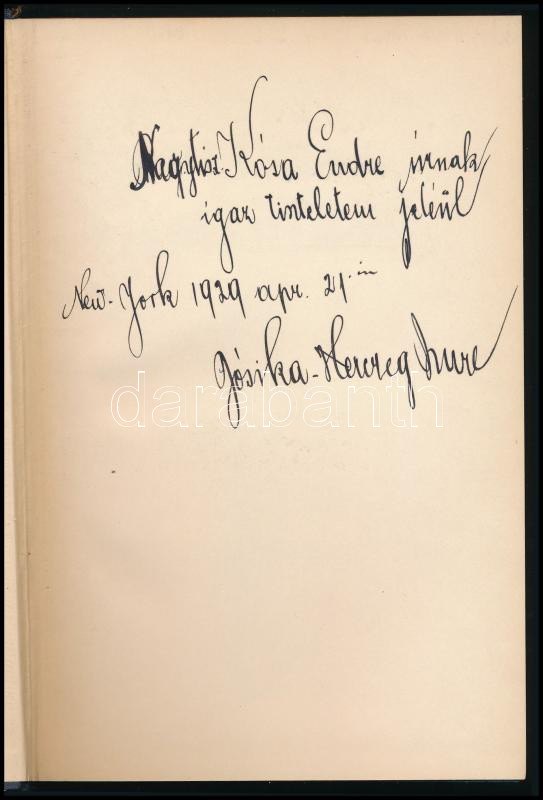 Nagytisz. Kósa Endre úrnak
igaz tiszteletem jeléül
New-York 1929 apr. 21.-in
Jósika-Herczeg Imre
darabanth